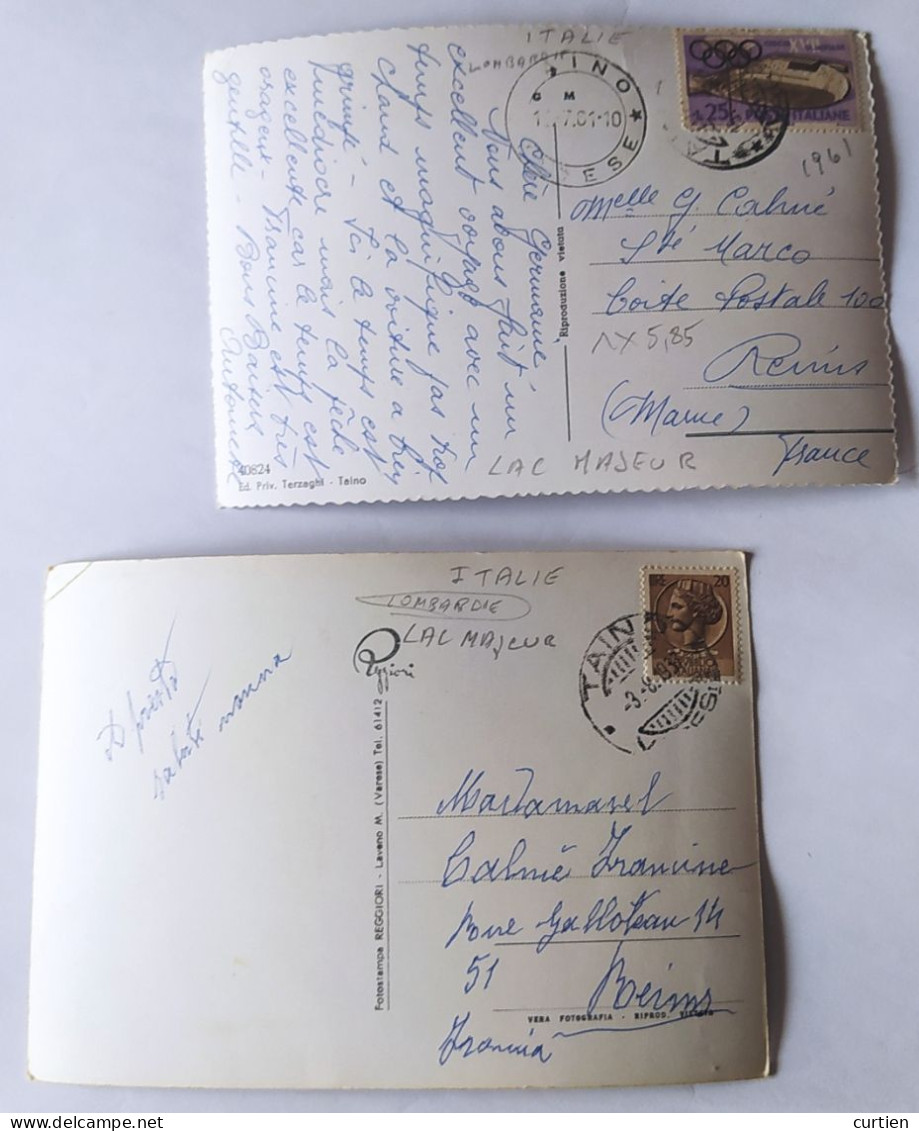 ITALIE
LOMBARDIE
INO
ESE
XVII
25
ITALIANE
1961
Chère Germaine,
Nous avons fait un
excellent voyage avec un
temps magnifique pas trop
chaud et la voiture a très
grimpé - Ici le temps est
médiocre mais la pêche
excellente car le temps est
orageux - Francine est très
gentille - Bons Baisers
Antoinette
Reproduzione vietata
Melle G. Calmé
Sté Marco
Boite Postale 100
Reims
(Marne)
France
1X 5,85
LAC MAJEUR
40824
Ed. Priv. Terzaghi - Taino
ITALIE
LOMBARDIE
LAC MAJEUR
Reggiori
20
TAINO
saluti nonna
Fotostampa REGGIORI - Laveno M. (Varese) Tel. 61412
Madamasel
Calmé Francine
Rue Galloteau 14
51 Reims
Francia
VERA FOTOGRAFIA - RIPROD. VIETATA
curtien